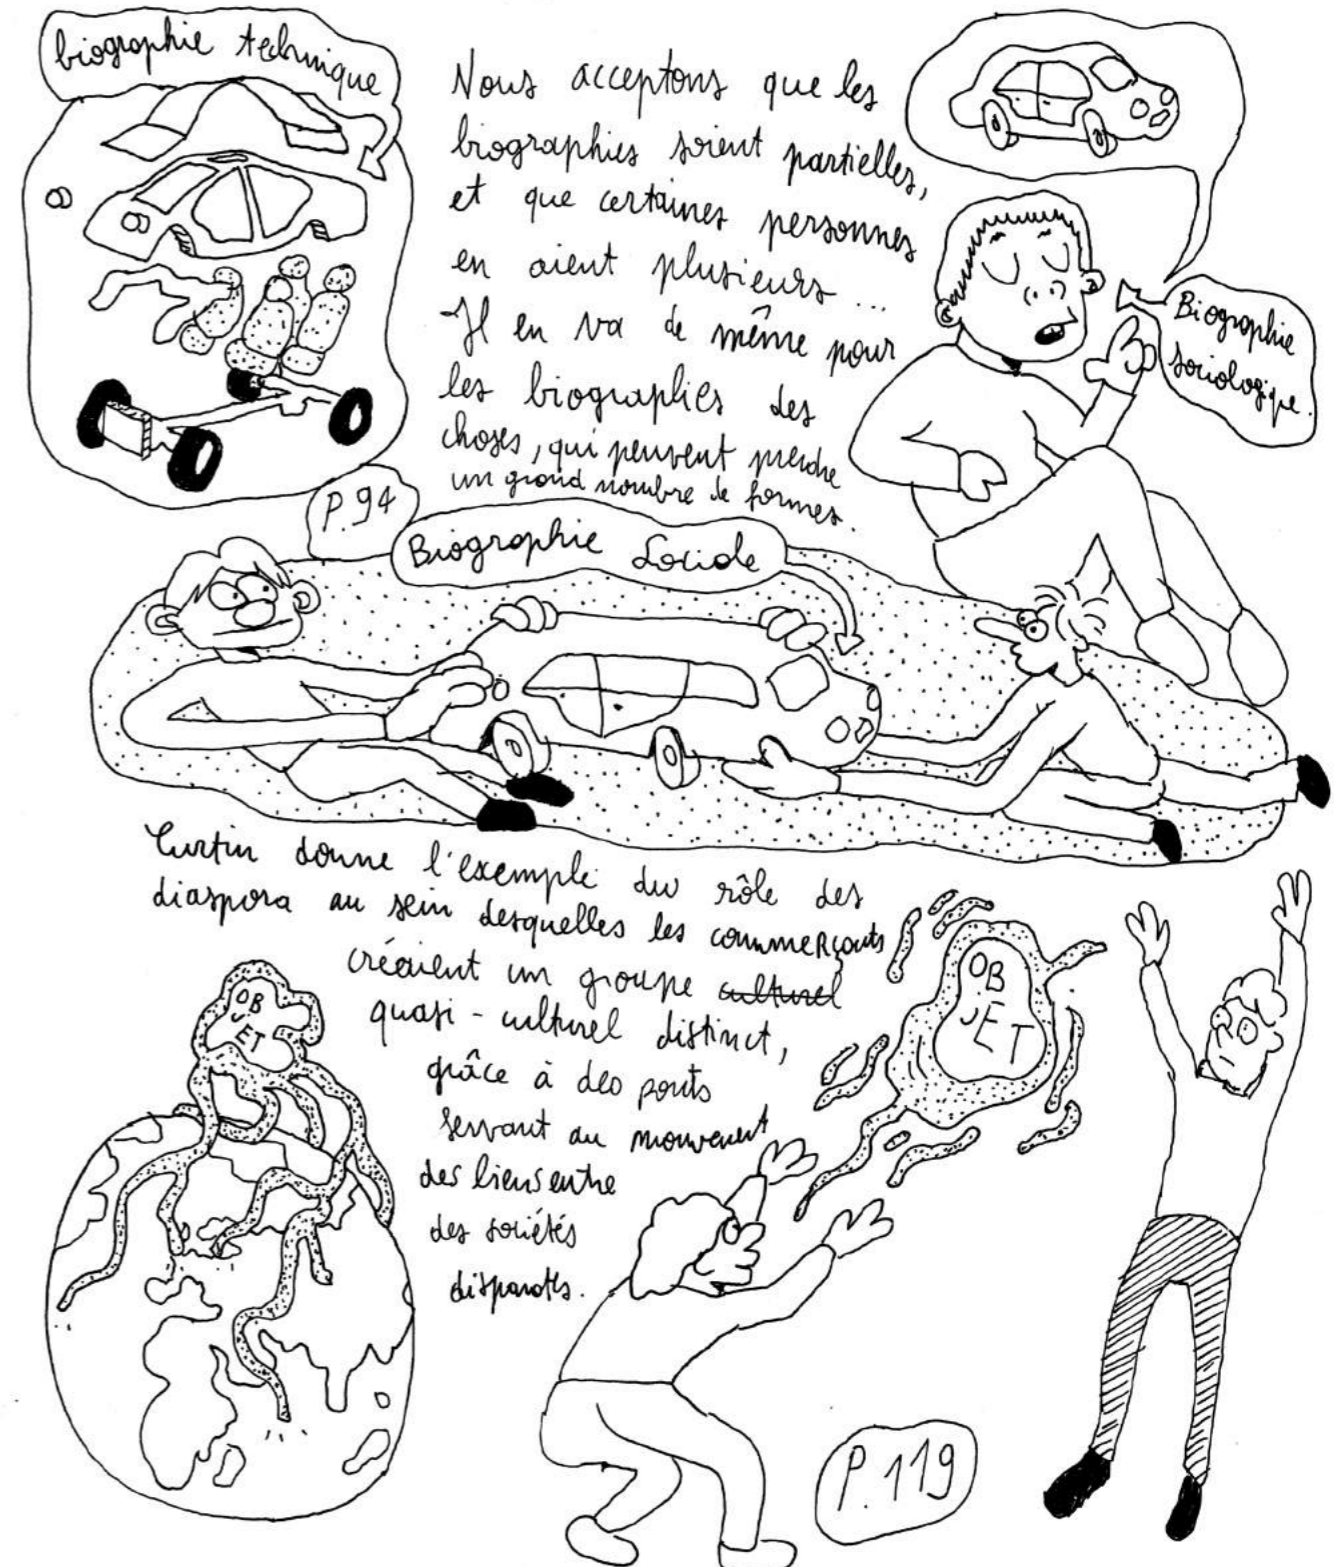 biographie technique
Nous acceptons que les
biographies soient partielles,
et que certaines personnes
en aient plusieurs...
Il en va de même pour
les biographies des
choses, qui peuvent prendre
un grand nombre de formes.
Biographie
sociologique.
P.94
Biographie Sociale
Curtin donne l'exemple du rôle des
diaspora au sein desquelles les commerçants
créaient un groupe culturel
quasi-culturel distinct,
grâce à des ponts
servant au mouvement
des liens entre
des sociétés
disparates.
OB
JET
OB
JET
P.119